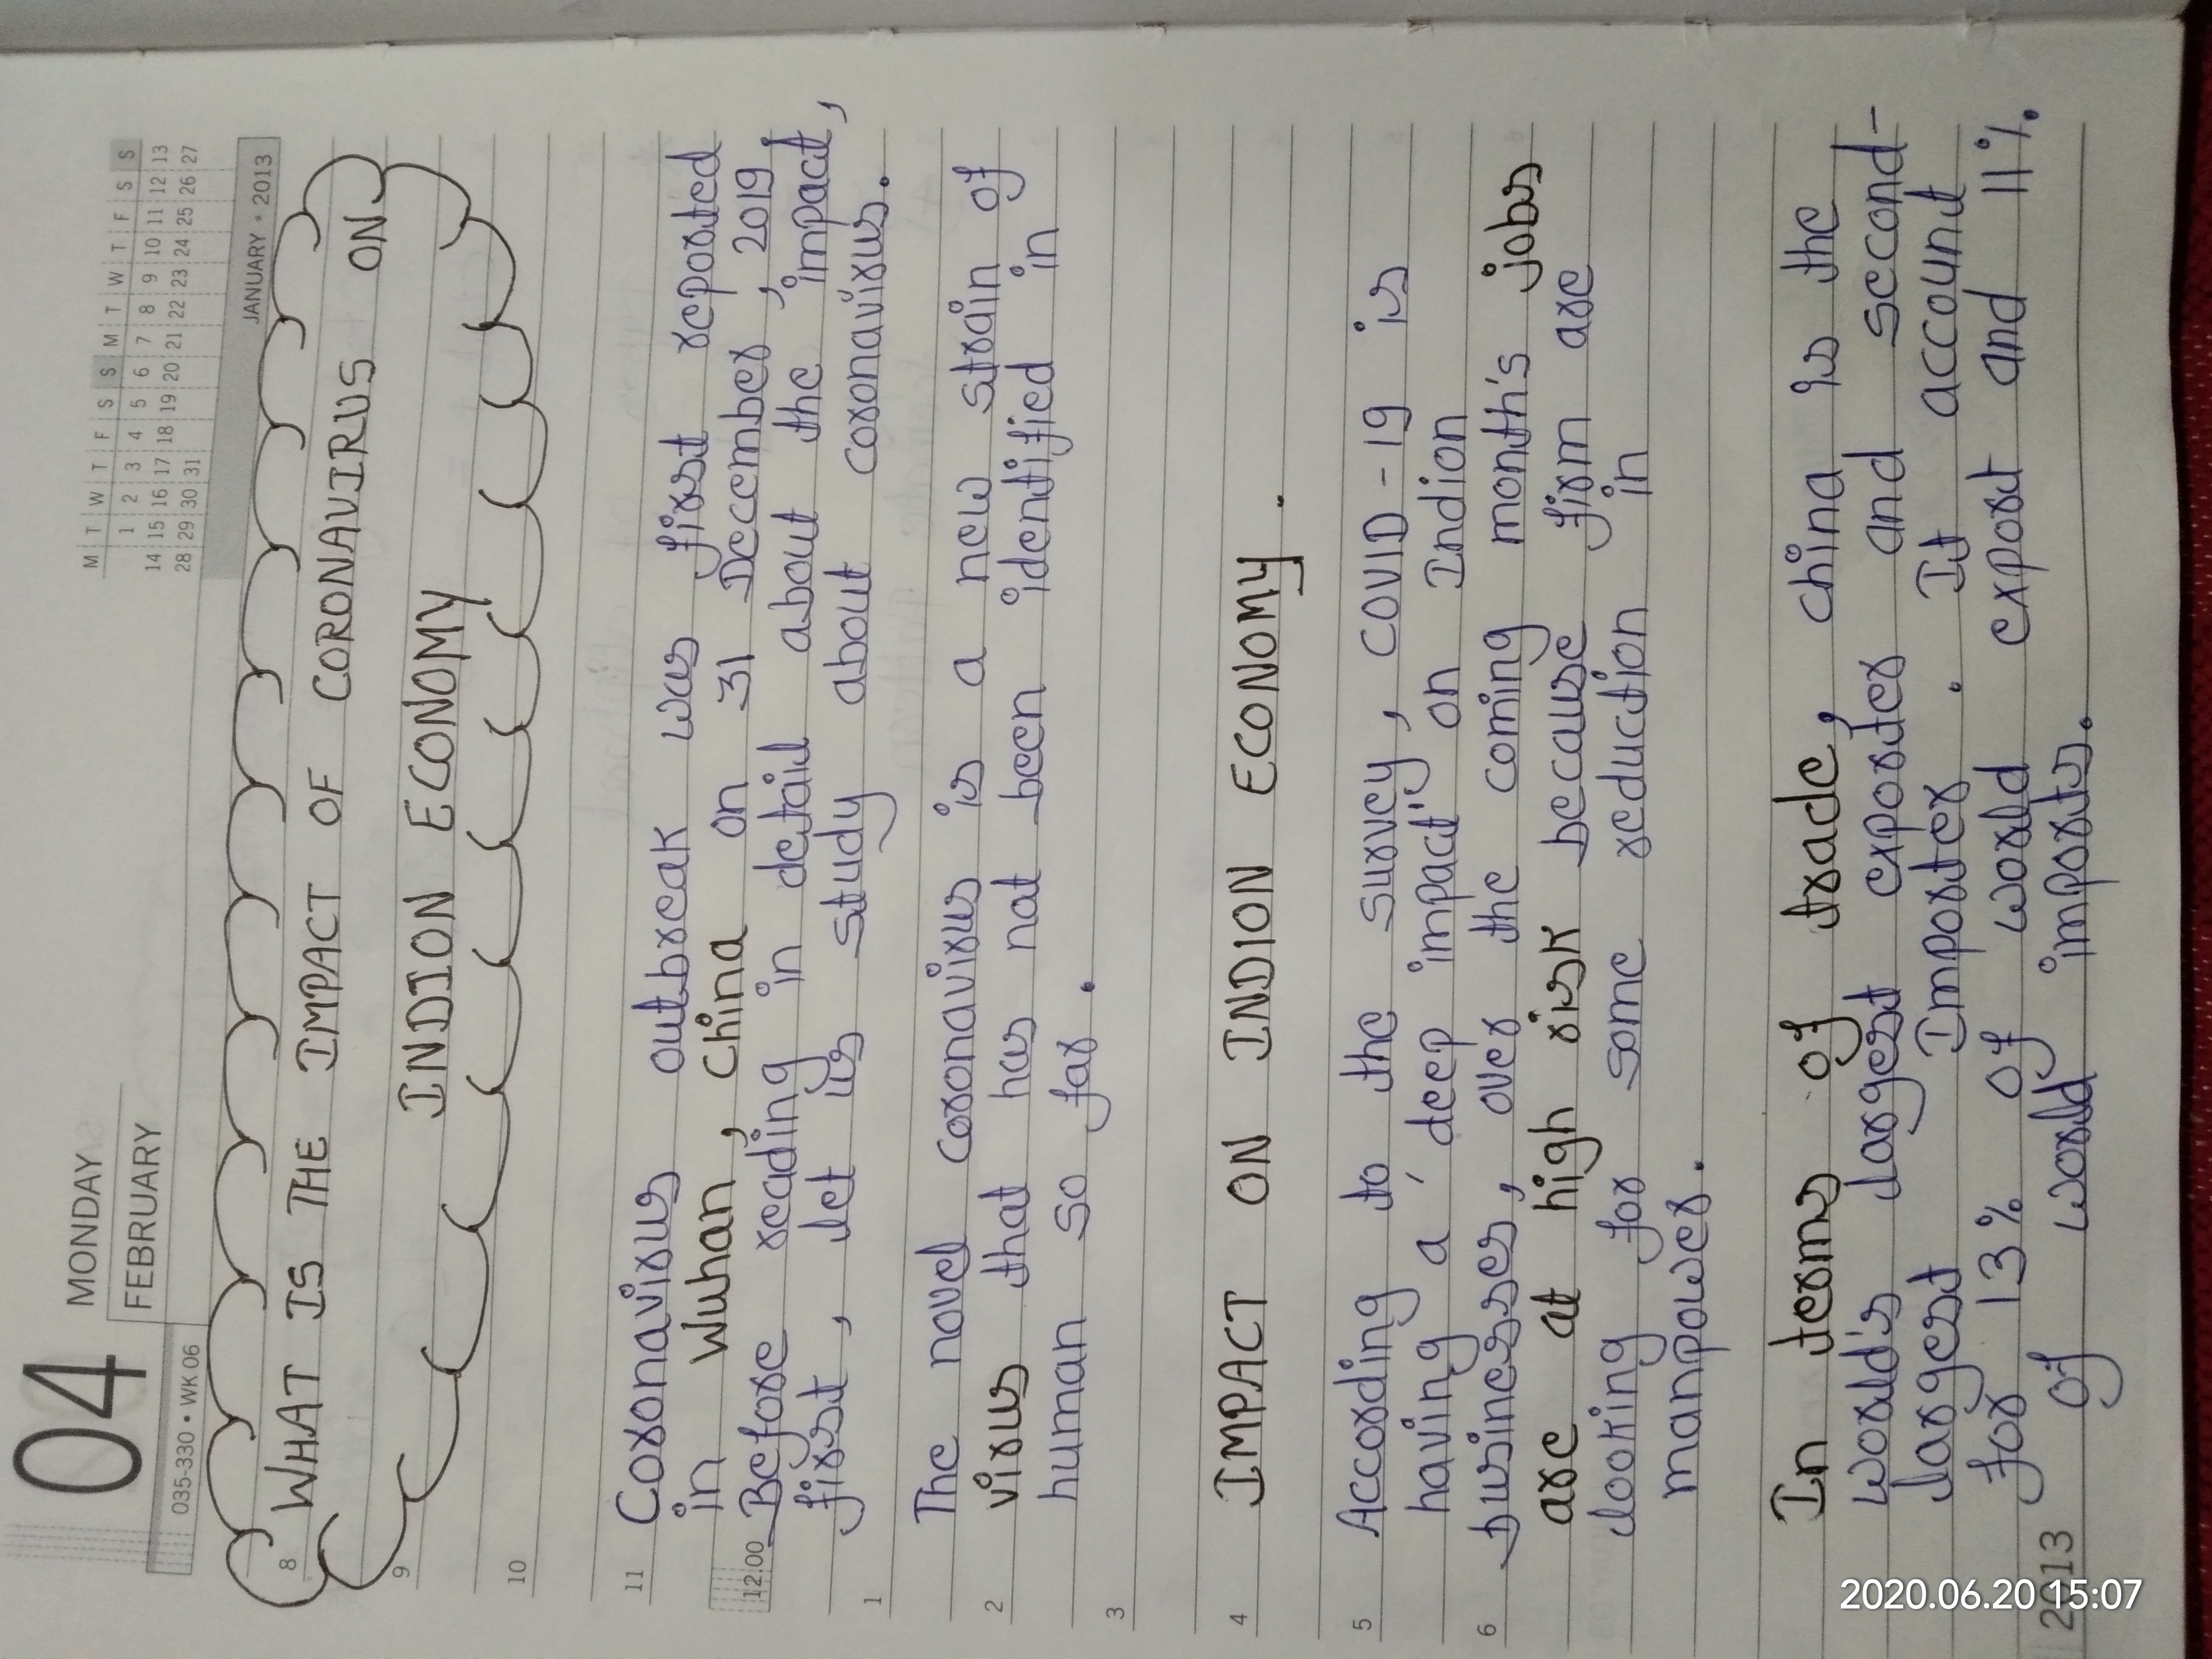 04 MONDAY
FEBRUARY
035-330 • WK 06
M T W T F S S M T W T F S S
1 2 3 4 5 6 7 8 9 10 11 12 13
14 15 16 17 18 19 20 21 22 23 24 25 26 27
28 29 30 31
JANUARY • 2013
8 WHAT IS THE IMPACT OF CORONAVIRUS ON
9 INDION ECONOMY
10
11 Coronavirus outbreak was first reported
in Wuhan, China on 31 December, 2019.
12.00 Before reading in detail about the impact,
first, let us study about coronavirus.
1
The novel coronavirus is a new strain of
2 virus that has nat been identified in
human so far.
3
4 IMPACT ON INDION ECONOMY.
5 According to the survey, COVID-19 is
having a 'deep impact' on Indion
6 businesses, over the coming month's jobs
are at high risk because firm are
looking for some reduction in
manpower.
In terms of trade, china is the
world's largest exporter and second-
largest Importer. It account
for 13% of world export and 11%
of world imports.
2013
2020.06.20 15:07